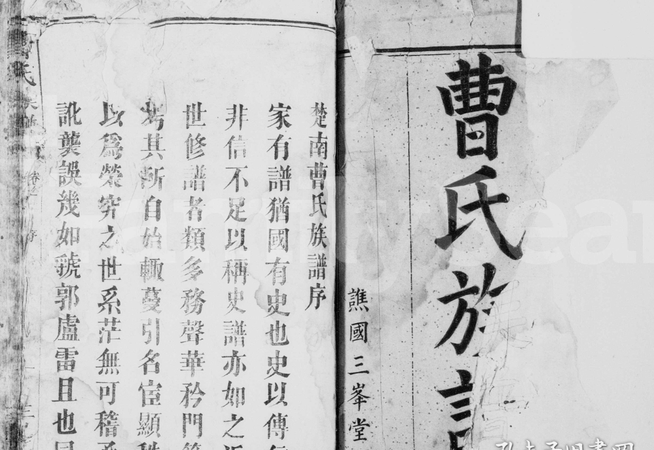 曹氏族
譙國三峯堂
楚南曹氏族譜序
家有譜猶國有史也史以傳
非信不足以稱史譜亦如之
世修譜者類多務聲華矜門
其所自始輙蔓引名宦顯
以為榮究之世系茫無可稽
訛襲誤幾如虢郭盧雷且也
氏族譜
FamilySear
孔夫子旧书网